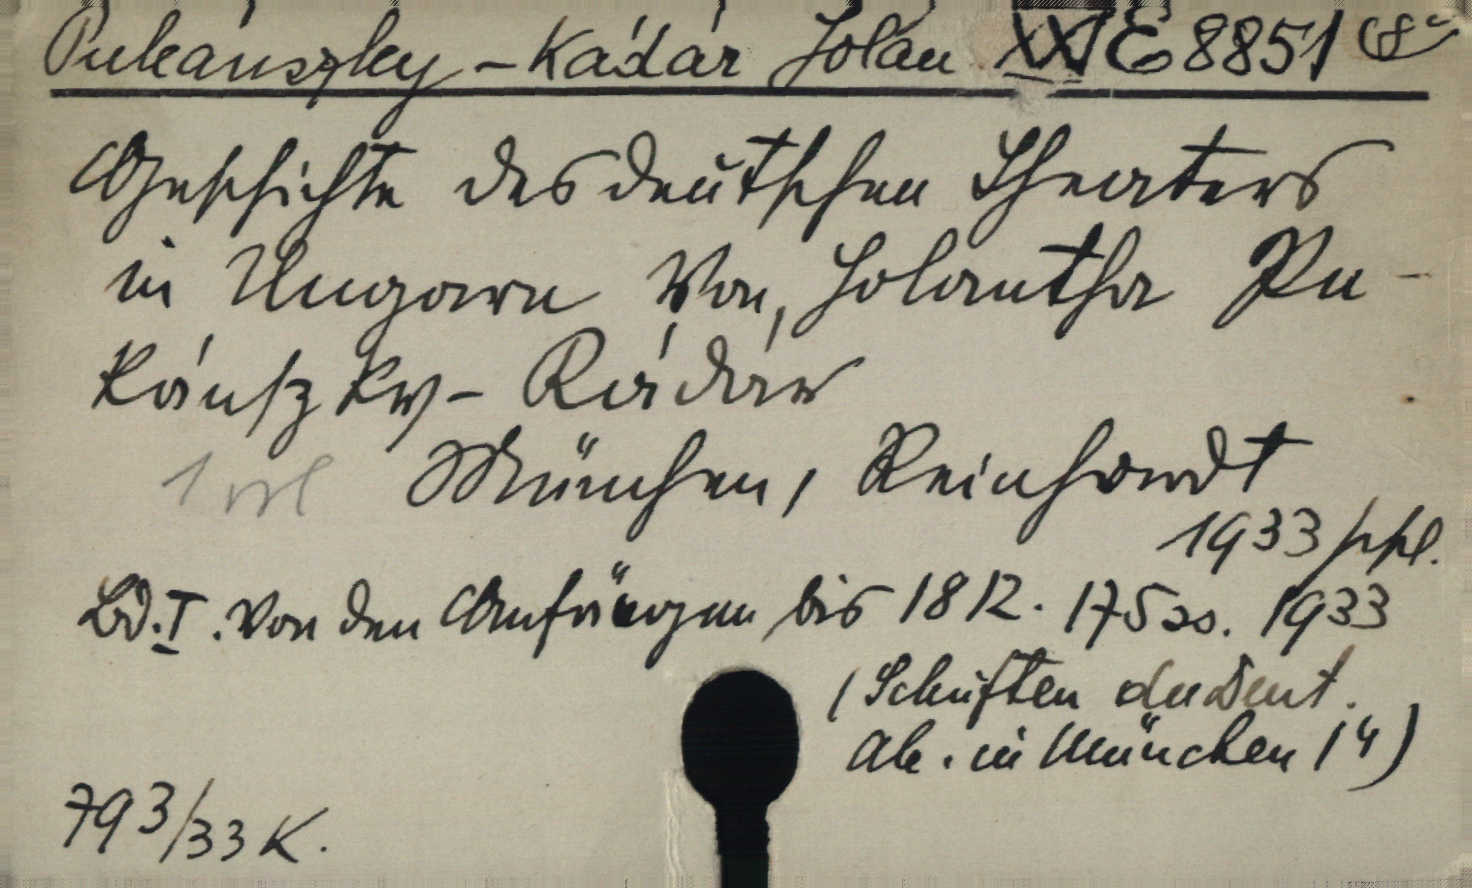 Pukánszky-Kádár Jolán XXE 8851
Geschichte des deutschen Theaters
in Ungarn Von, Jolantha Pu-
kánszky-Kádár
München, Reinhardt
1933
Bd. I. Von den Anfängen bis 1812. 175 ss. 1933
(Schriften der Deut.
Ak. in München 14)
793/33 K.